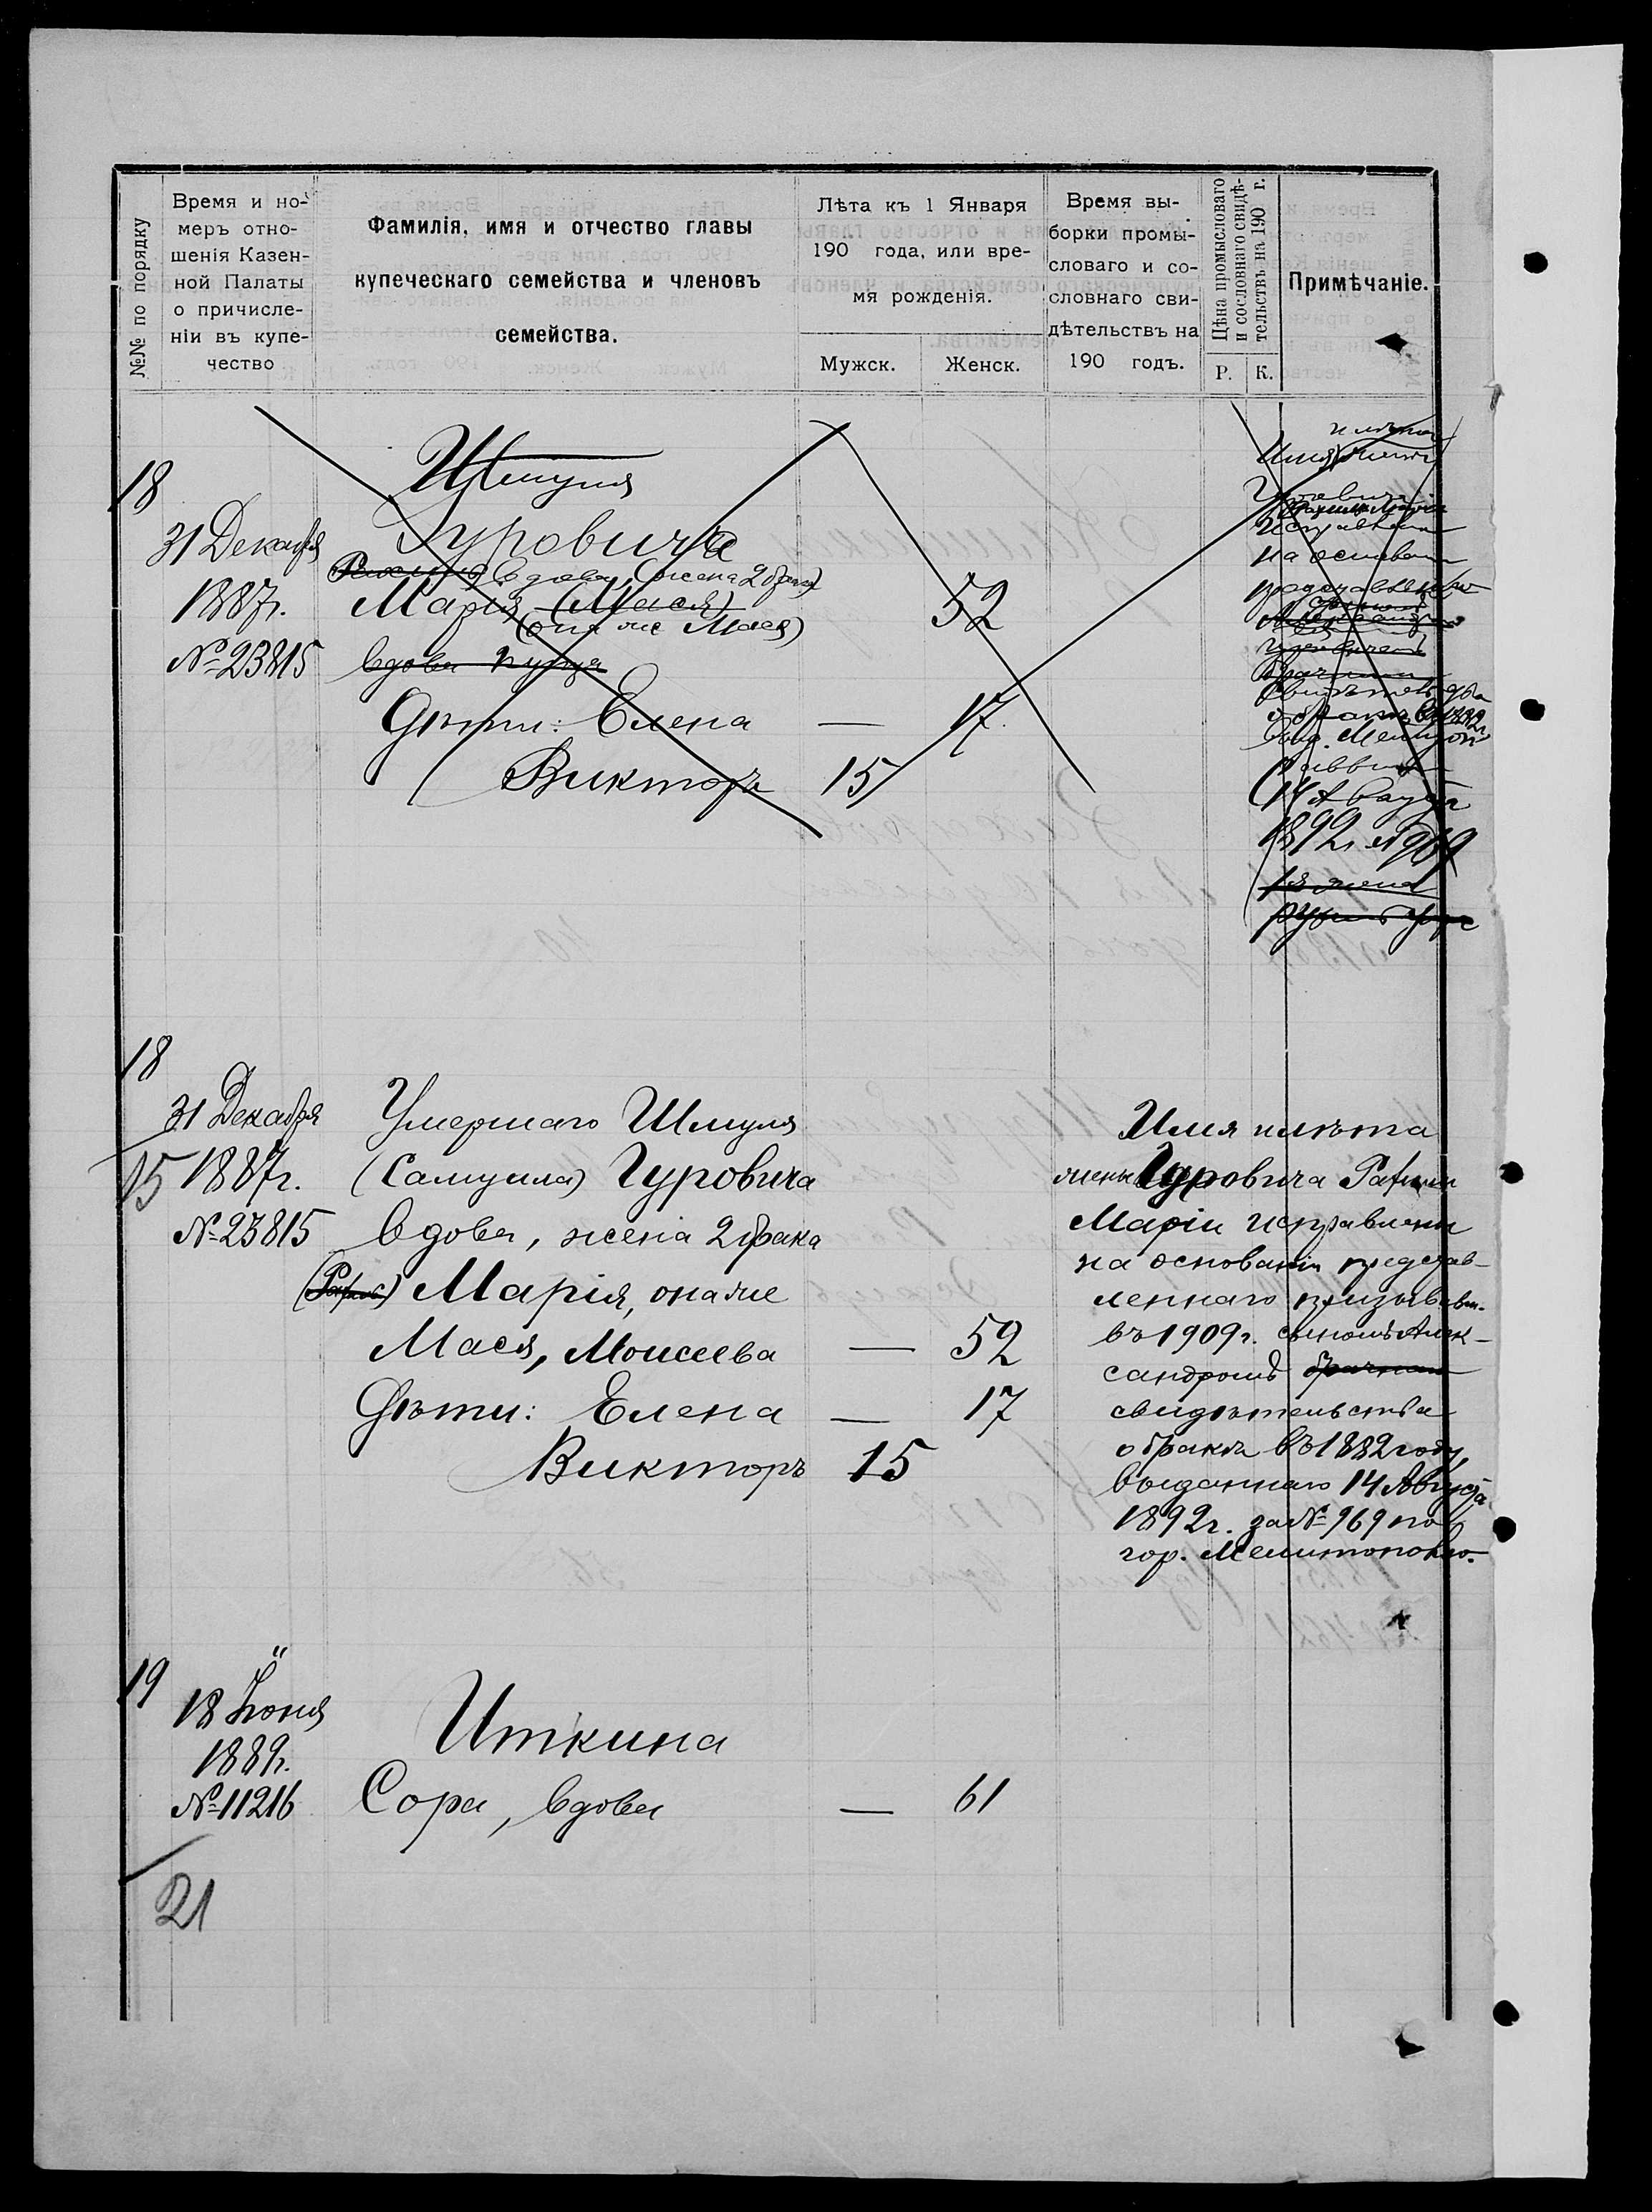 №№ по порядку
Время и но-
меръ отно-
шенія Казен-
ной Палаты
о причисле-
ніи въ купе-
чество
Фамилія, имя и отчество главы
купеческаго семейства и членовъ
семейства.
Лѣта къ 1 Января
190 года, или вре-
мя рожденія.
Мужск. Женск.
Время вы-
борки промы-
словаго и со-
словнаго сви-
дѣтельствъ на
190 годъ.
Цѣна промысловаго
и сословнаго свидѣ-
тельствъ на 190 г.
Р. К.
Примѣчаніе.
18
31 Декабря
1887г.
№ 23815
Шмуля
Гуровича
вдова (жена 2 брака)
Марія (Мася) 52
(она же Мася)
вдова купца
Дѣти: Елена — 17
Викторъ 15
и лѣта
Имя
исправлены
на основан
представлен
Свидѣтельства
о бракѣ въ 1882
14 Августа
1892г. № 969
18
31 Декабря
1887г.
№ 23815
15
Умершаго Шмуля
(Самуила) Гуровича
вдова, жена 2 брака
Марія, она же
Мася, Моисеева — 52
Дѣти: Елена — 17
Викторъ 15
Имя и лѣта
жены Гуровича
Маріи исправлены
на основаніи представ-
леннаго призывавш.
въ 1909г. сыномъ Алек-
сандромъ
свидѣтельства
о бракѣ въ 1882 году,
выданнаго 14 Августа
1892г. за № 969 по
гор. Мелитополю.
19
18 Іюня
1889г.
№ 11216
21
Иткина
Сора, вдова — 61